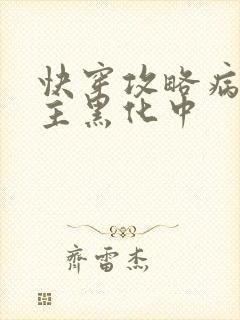 快穿攻略病
主黑化中
齊雷杰